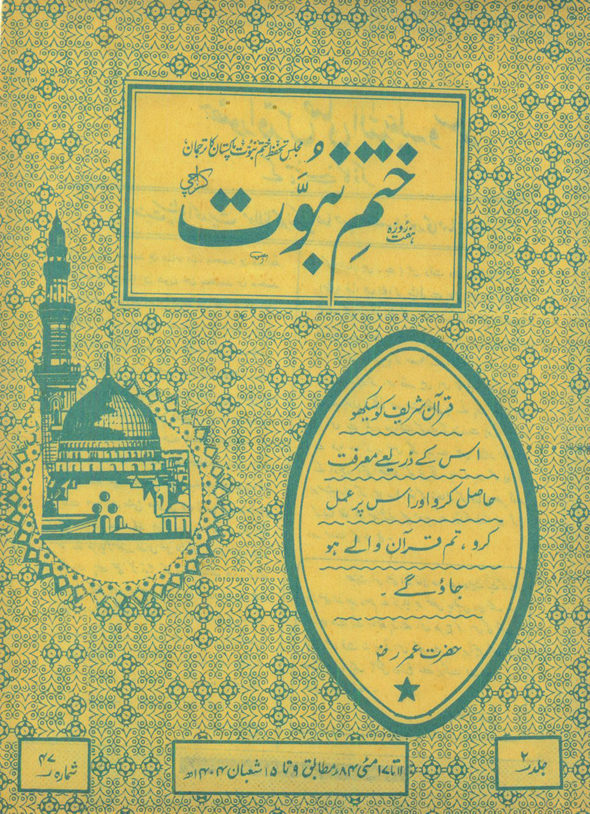 مجلس تحفظ ختم نبوت پاکستان کا ترجمان
ہفت روزہ
ختمِ نبوّت
کراچی
قرآن شریف کو سیکھو
اس کے ذریعے معرفت
حاصل کرو اور اس پر عمل
کرو، تم قرآن والے ہو
جاؤ گے۔
حضرت عمر رضؓ
جلد ۲
۱۱ تا ۱۷ مئی ۸۴ء مطابق ۹ تا ۱۵ شعبان ۱۴۰۴ھ
شمارہ ۴۷